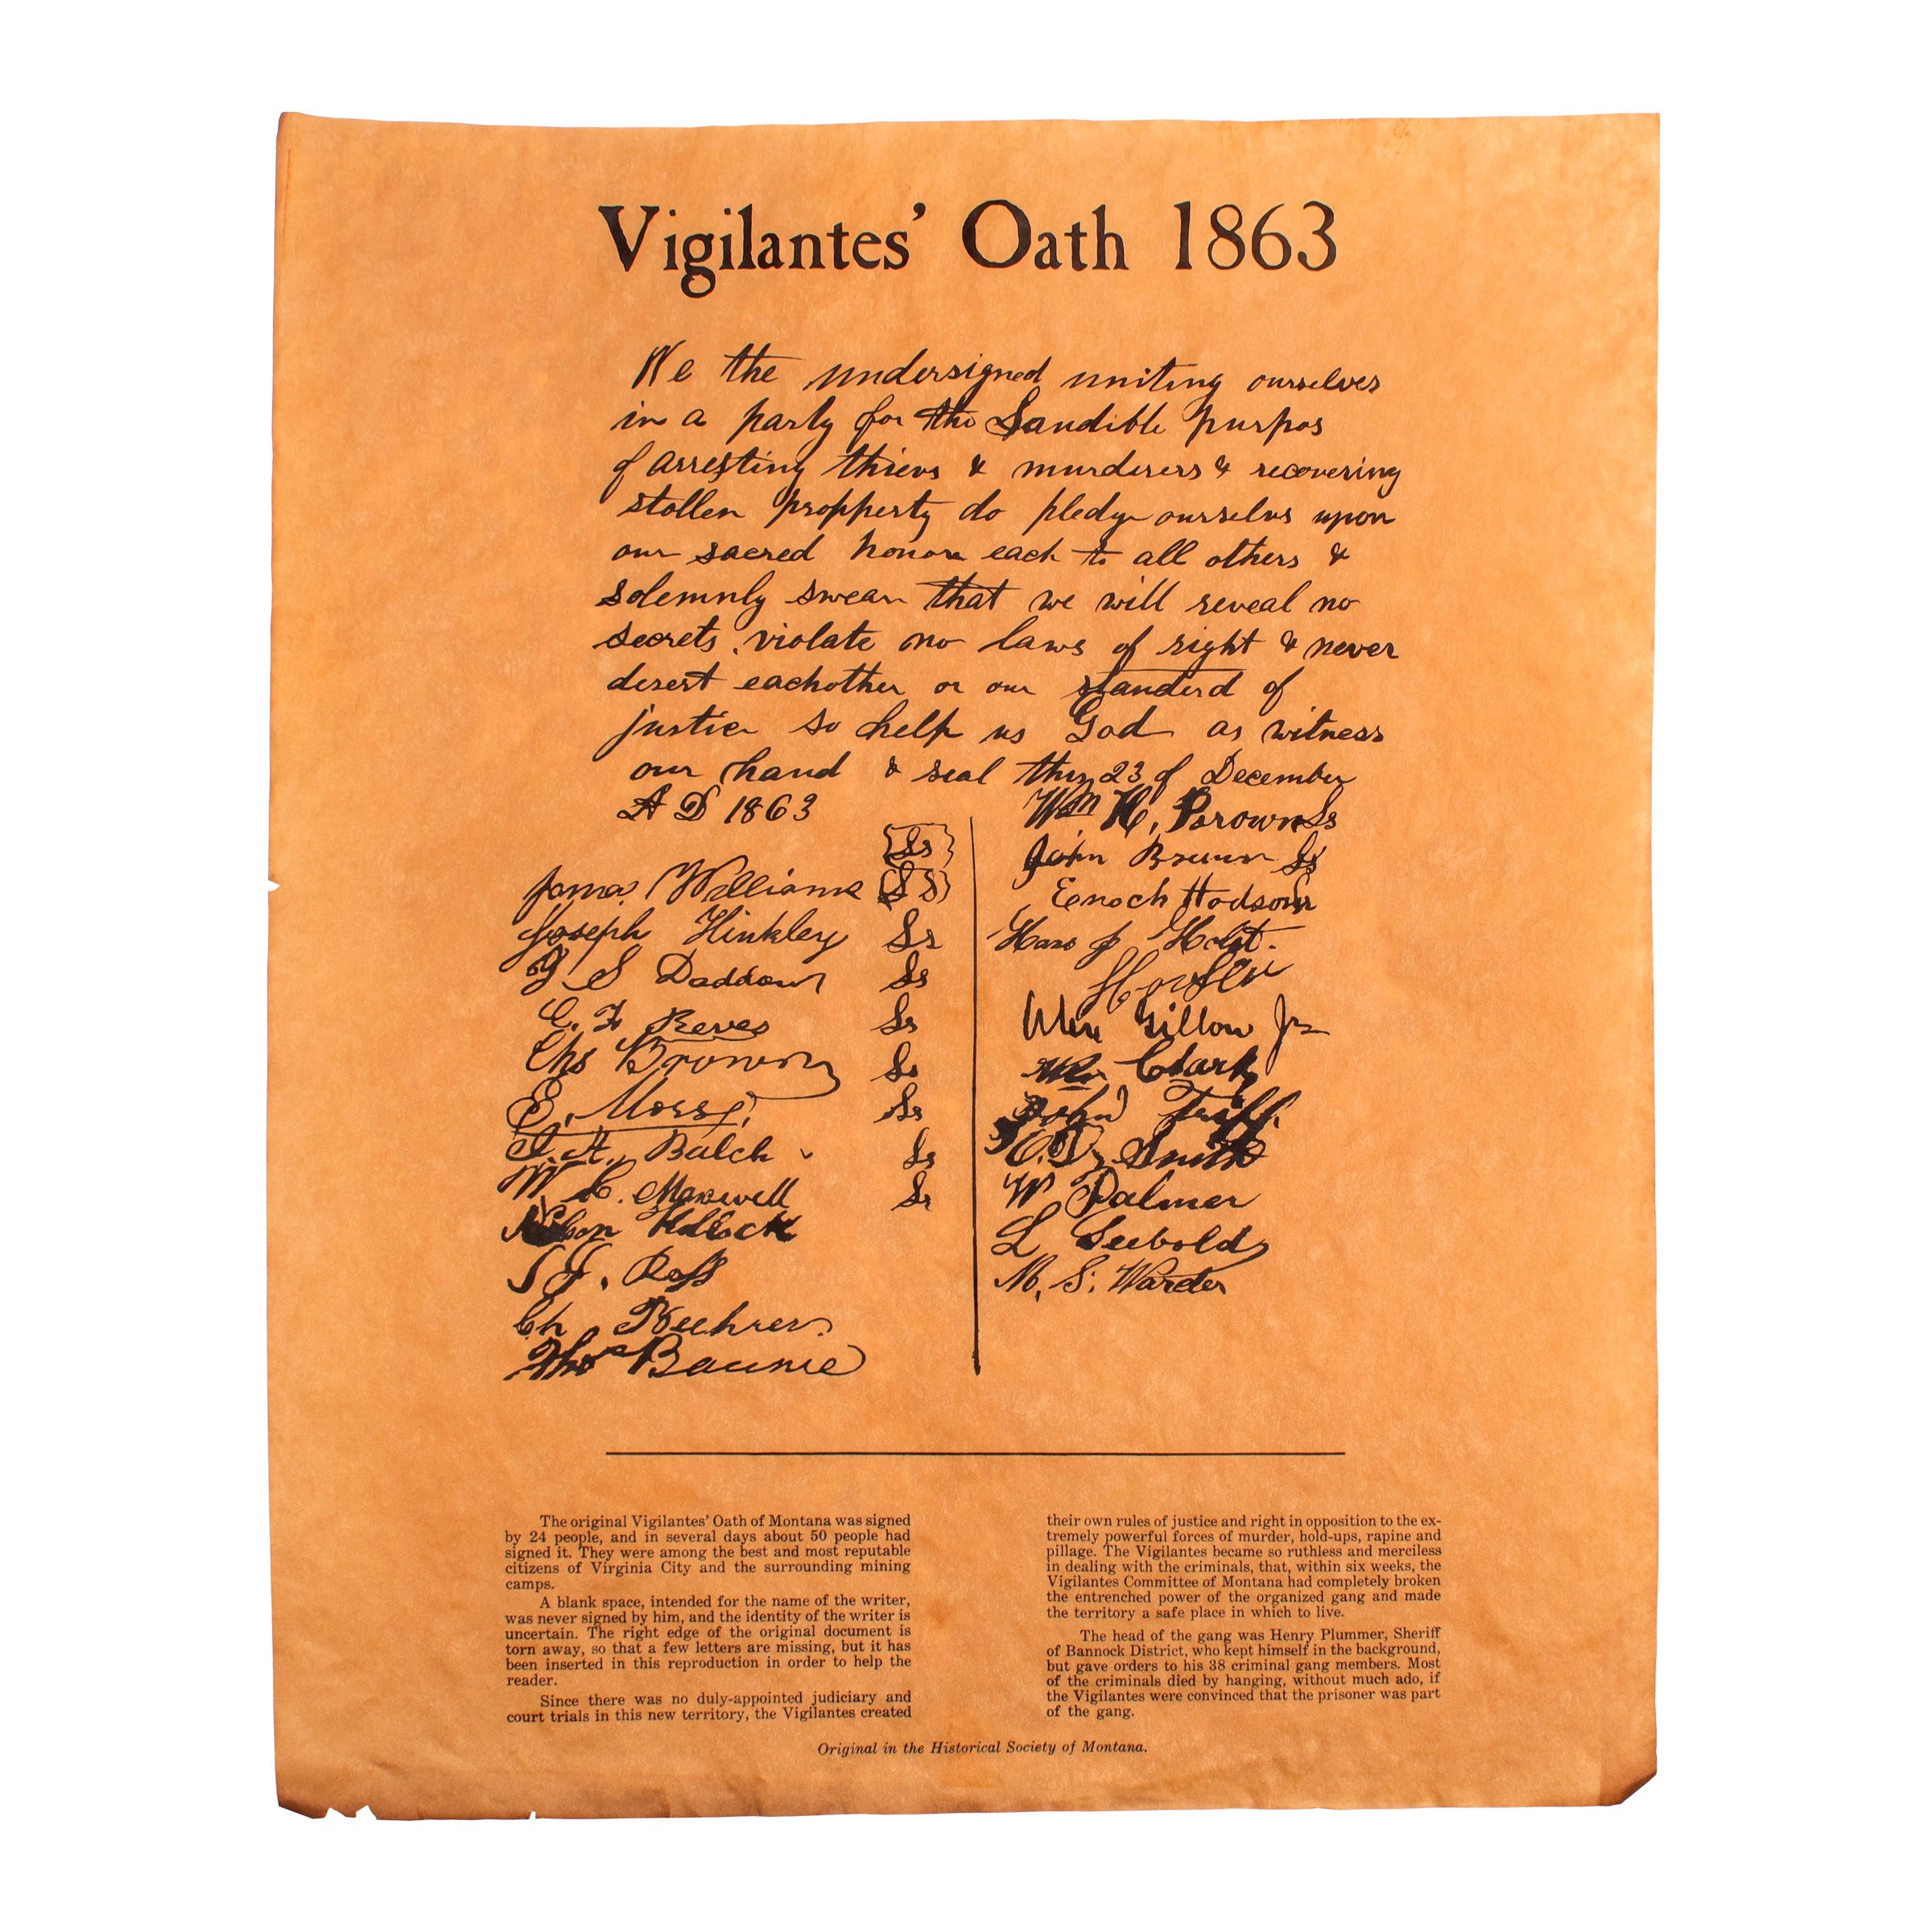 Vigilantes' Oath 1863
We the undersigned uniting ourselves
in a party for the Laudible purpos
of arresting thievs & murderers & recovering
stollen propperty do pledge ourselvs upon
our sacred honor each to all others &
solemnly swear that we will reveal no
secrets, violate no laws of right & never
desert eachother or our standerd of
justice so help us God as witness
our hand & seal this 23 of December
A D 1863
Ss
James Williams Ss
Joseph Hinkley Ss
J S Daddow Ss
C. F Reves Ss
Chs Brown Ss
E. Morse, Ss
J. A. Balch Ss
W C. Maxwell Ss
Nelson Kellock
S J. Ross
Ch Beehrer.
Thos Baume
Wm H. Brown Ss
John Brown Ss
Enoch Hodson
Hans J Holst.
Wm Gillow Jr
Wm Clark
John Triff.
C. D. Smith
W Palmer
L Seebold
M. S. Warder
The original Vigilantes' Oath of Montana was signed
by 24 people, and in several days about 50 people had
signed it. They were among the best and most reputable
citizens of Virginia City and the surrounding mining
camps.
A blank space, intended for the name of the writer,
was never signed by him, and the identity of the writer is
uncertain. The right edge of the original document is
torn away, so that a few letters are missing, but it has
been inserted in this reproduction in order to help the
reader.
Since there was no duly-appointed judiciary and
court trials in this new territory, the Vigilantes created
their own rules of justice and right in opposition to the ex-
tremely powerful forces of murder, hold-ups, rapine and
pillage. The Vigilantes became so ruthless and merciless
in dealing with the criminals, that, within six weeks, the
Vigilantes Committee of Montana had completely broken
the entrenched power of the organized gang and made
the territory a safe place in which to live.
The head of the gang was Henry Plummer, Sheriff
of Bannock District, who kept himself in the background,
but gave orders to his 38 criminal gang members. Most
of the criminals died by hanging, without much ado, if
the Vigilantes were convinced that the prisoner was part
of the gang.
Original in the Historical Society of Montana.